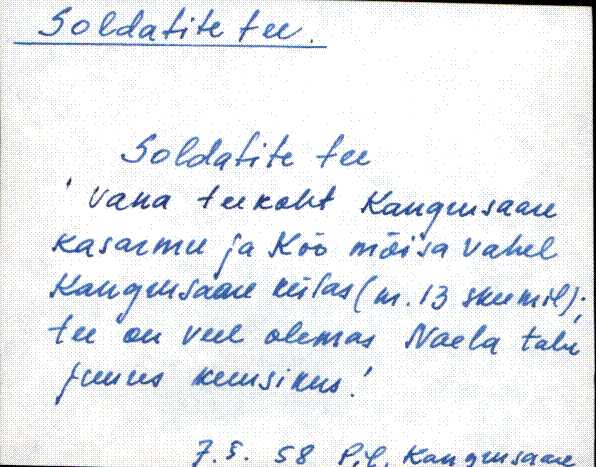 Soldatite tee.
Soldatite tee
' Vana teekoht Kangrusaare
kasarmu ja Köö mõisa vahel
Kangrusaare külas (nr. 13 skeemil);
tee on veel olemas Naela talu
juures kuusikus.'
7. 5. 58 Pil, Kangrusaare